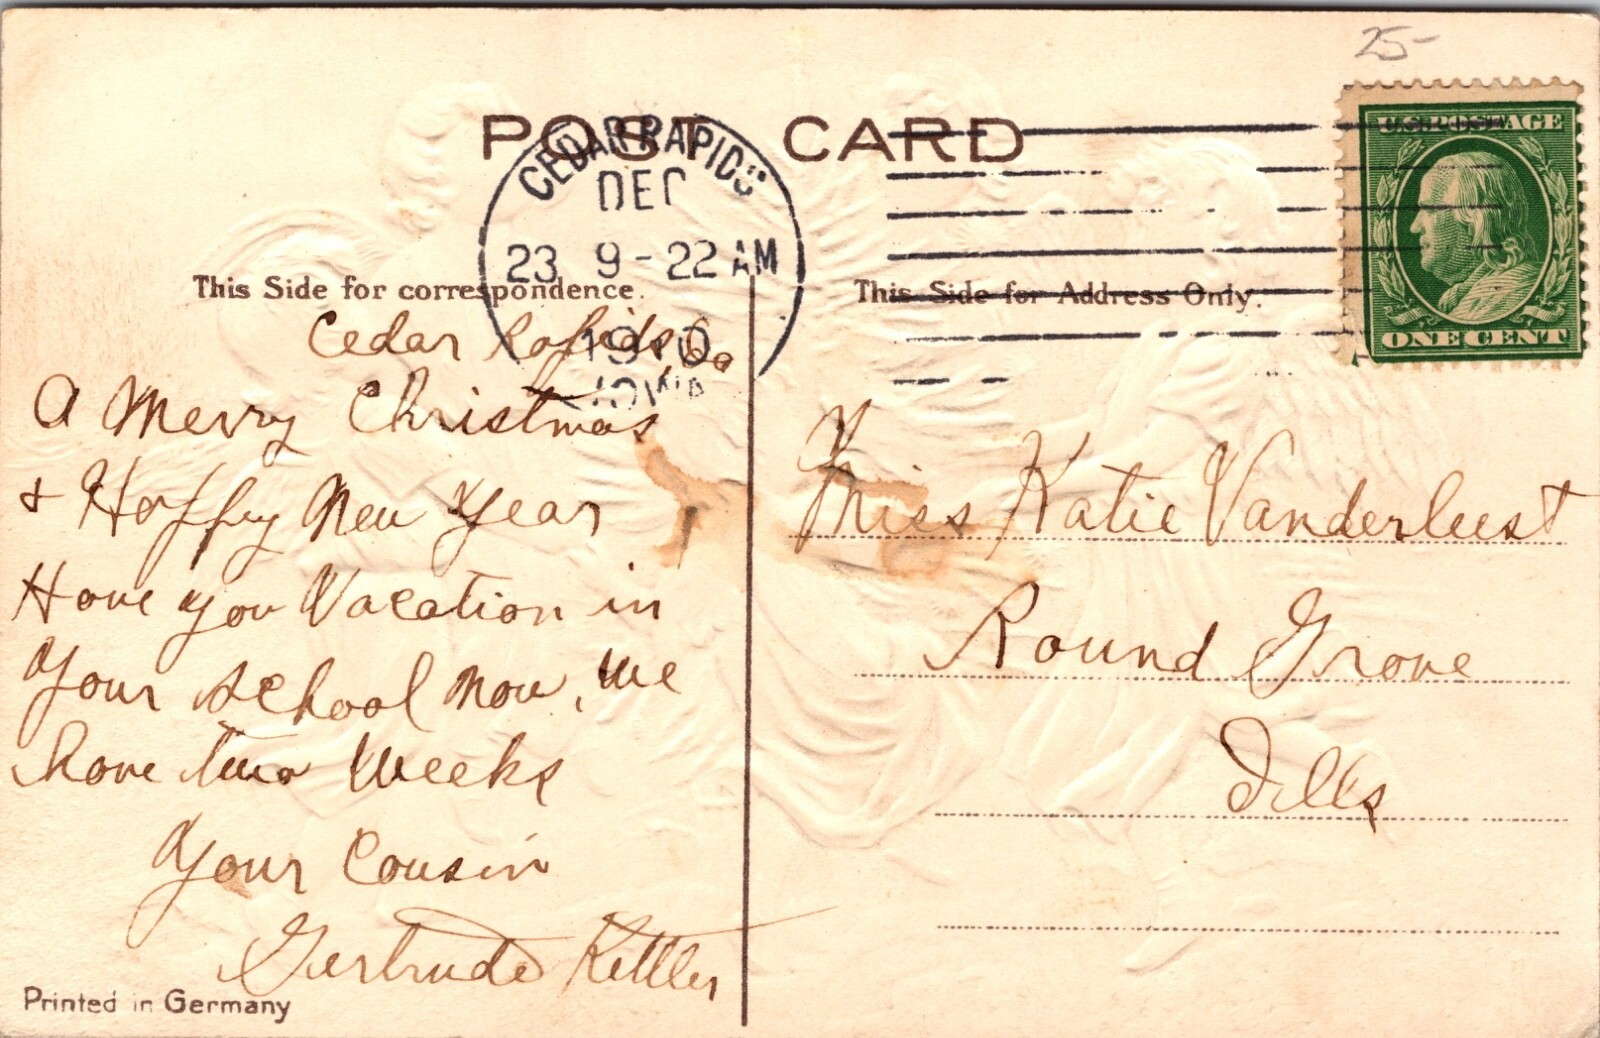 25-
POST CARD
U.S. POSTAGE
ONE CENT
CEDAR RAPIDS
DEC
23 9-22 AM
1910
IOWA
This Side for correspondence.
This Side for Address Only.
Cedar Rapids,
A Merry Christmas
+ Happy New Year
Have you Vacation in
your school now, We
have two Weeks
Your Cousin
Gertrude Kettler
Printed in Germany
Miss Katie Vanderleest
Round Grove
Ills